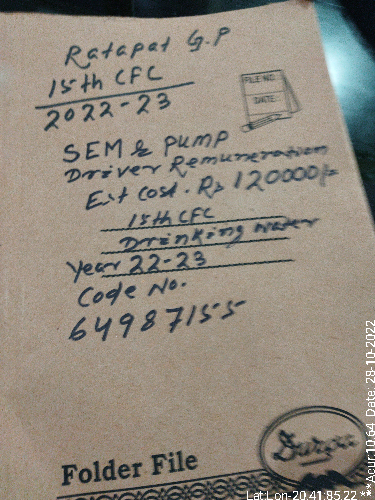 Ratapat G.P
15th CFC
2022-23
FILE NO.
DATE:
SEM & pump
Driver Remuneration
Est Cost. Rs 120000/-
15th CFC
Drinking water
Year 22-23
Code No.
64987155
Durga
Folder File
Lat Lon-20.41,85.22 ***Acur:10.64, Date: 28-10-2022